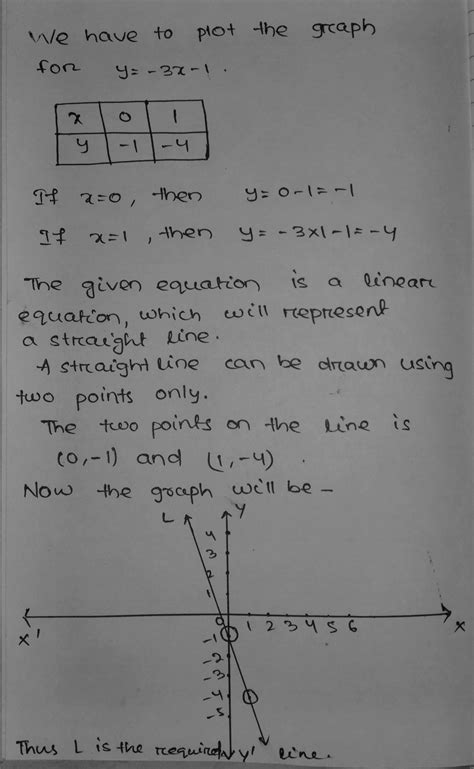 We have to plot the graph
for y = -3x - 1 .
x 0 1
y -1 -4
If x=0, then y = 0-1 = -1
If x=1, then y = -3×1-1 = -4
The given equation is a linear
equation, which will represent
a straight line.
A straight line can be drawn using
two points only.
The two points on the line is
(0,-1) and (1,-4) .
Now the graph will be -
L Y
4
3
2
1
X' 0 1 2 3 4 5 6 X
-1
-2
-3
-4
-5
Thus L is the required Y' line.